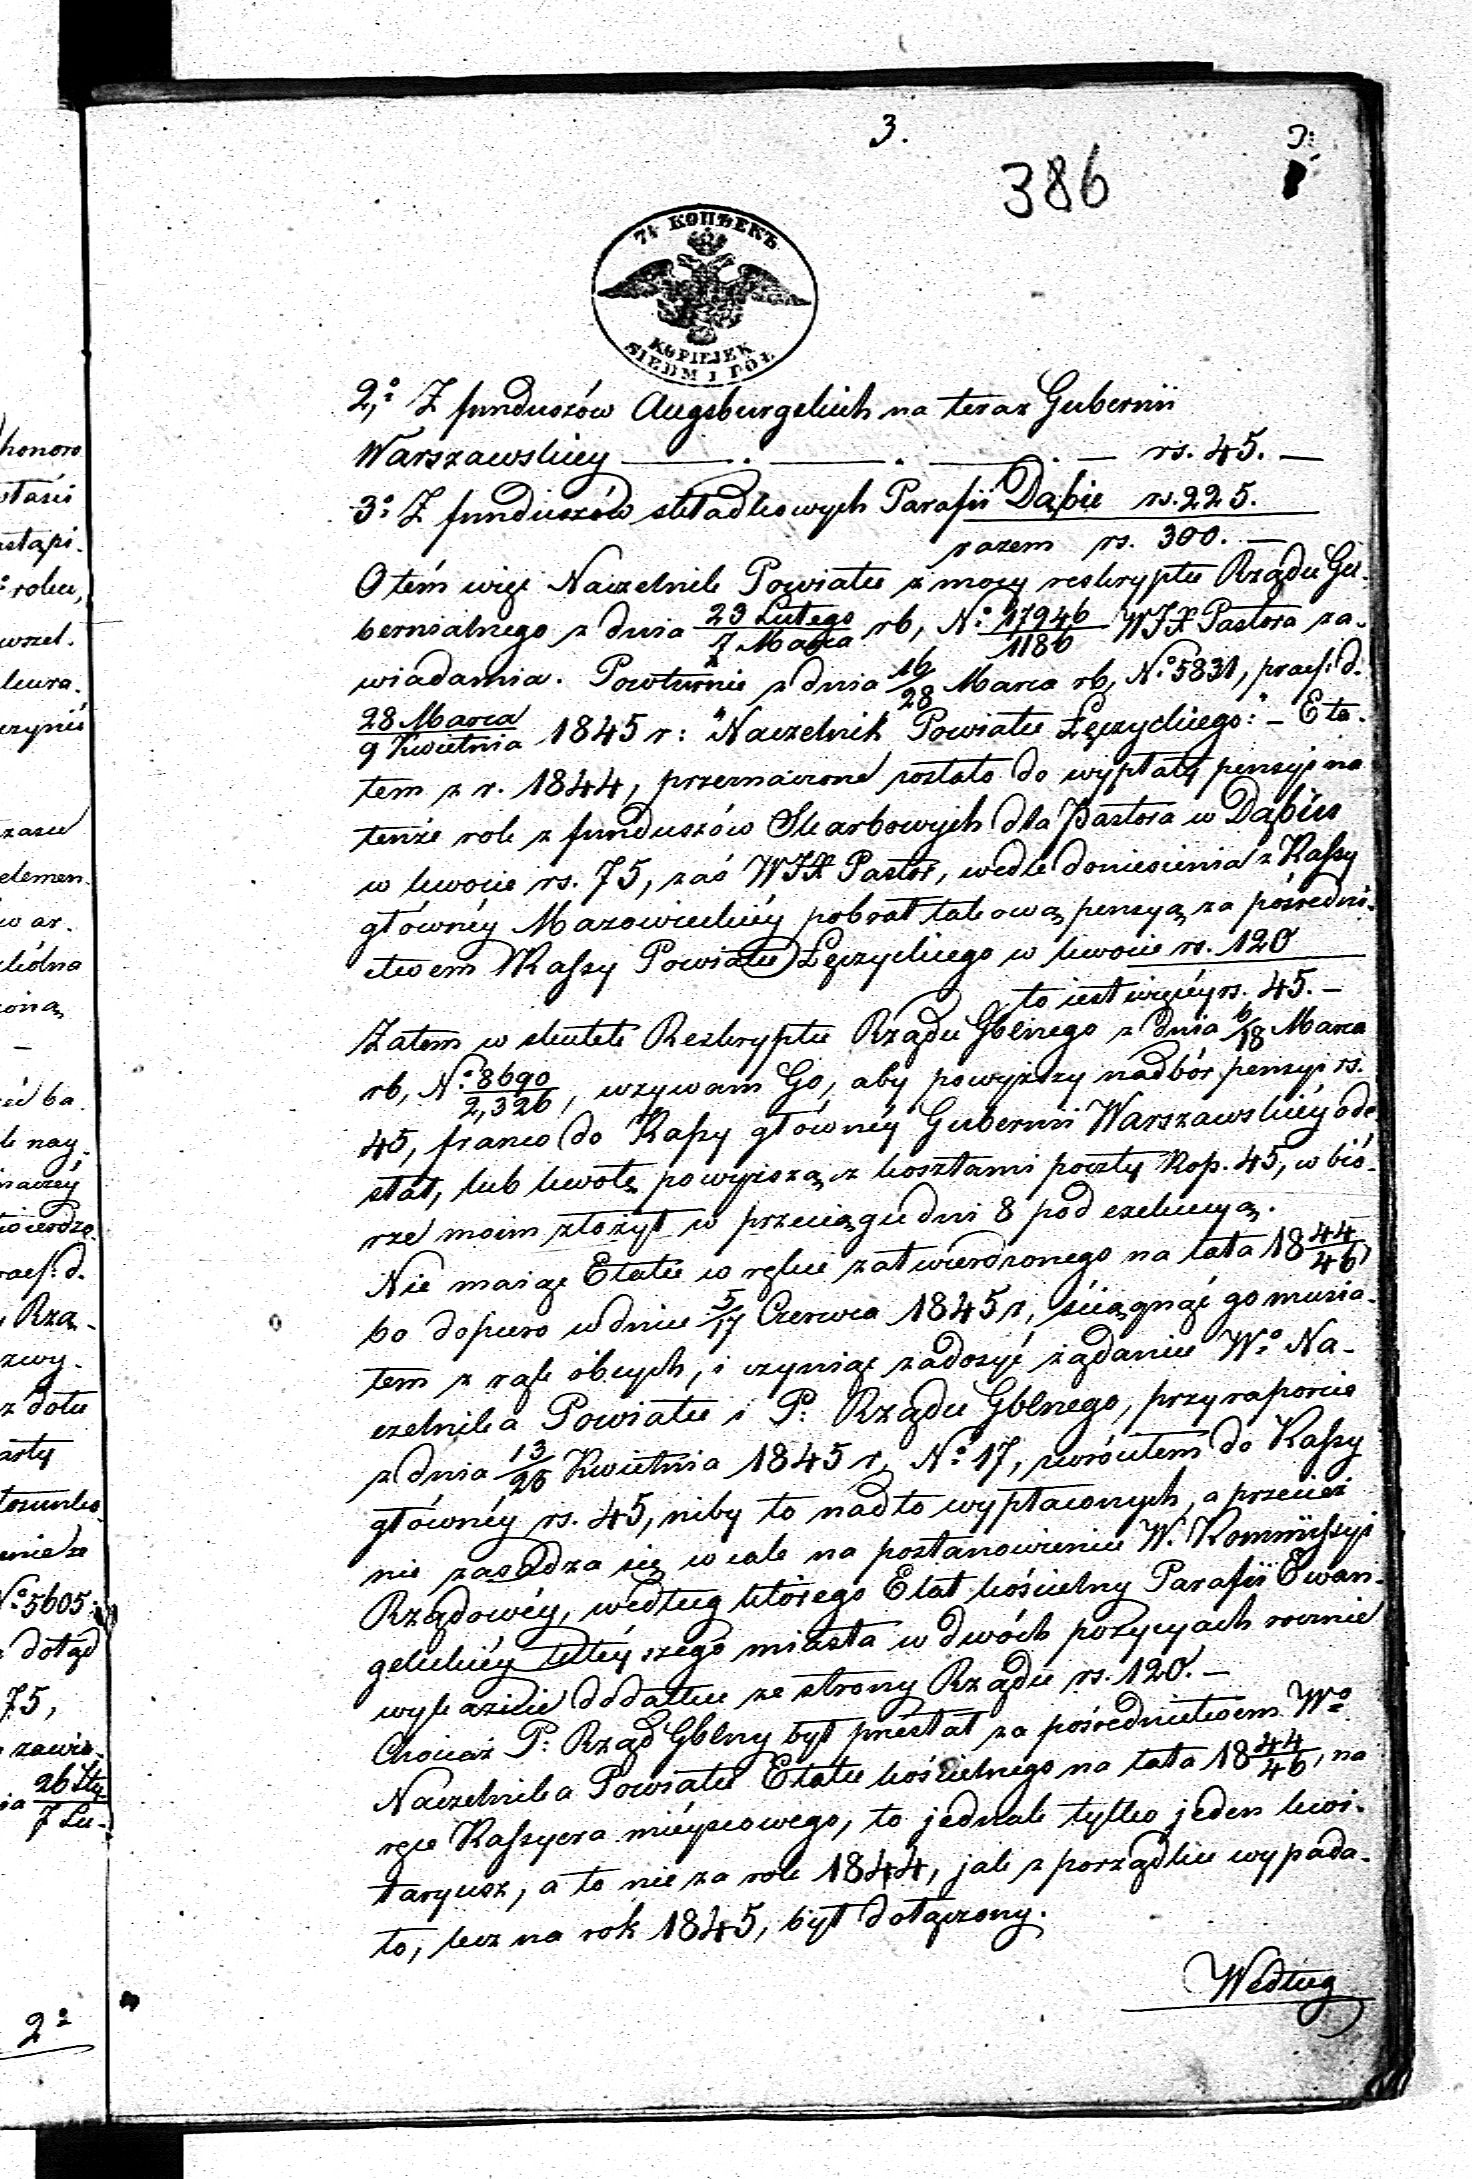 3.
386
7½ КОПѢЕКЪ
KOPIEJEK
SIEDM I PÓŁ
2,o Z funduszów Augsburgskich na teraz Gubernii
Warszawskiey — . — . — . — rs. 45. —
3o Z funduszów składkowych Parafii Dąbie rs. 225.
razem rs. 300. —
O tém więc Naczelnik Powiatu z mocy reskryptu Rządu Gu-
bernialnego z dnia 23 Lutego/7 Marca rb, No 17946/1186 WJX Pastora za-
wiadamia. Powturnie z dnia 16/28 Marca rb, No 5831, praes: d.
28 Marca/9 Kwietnia 1845 r: "Naczelnik Powiatu Łęczyckiego:" – Eta-
tem z r. 1844, przeznaczone zostało do wypłaty pensyi na
tenże rok z funduszów Skarbowych dla Pastora w Dąbiu
w kwocie rs. 75, zaś WJX Pastor, wedle doniesienia z Kassy
głównéy Mazowieckiéy pobrał takową pensyą za pośredni-
ctwem Kassy Powiatu Łęczyckiego w kwocie rs. 120
to iest więcéy rs. 45. –
Zatem w skutek Reskryptu Rządu Gblnego z dnia 6/18 Marca
rb, No 8690/2,326, wzywam Go, aby powyższy nadbór pensyi rs.
45, franco do Kassy głównéy Gubernii Warszawskiéy ode-
słał, lub kwotę powyższą z kosztami poczty Kop. 45, w bió-
rze moim złożył w przeciągu dni 8 pod exekucyą.
Nie maiąc Etatu w ręku zatwierdzonego na lata 1844/46,
bo dopiero w dniu 5/17 Czerwca 1845 r, ściągnąć go musia-
łem z rąk óbcych, i czyniąc zadosyć żądaniu Wo Na-
czelnika Powiatu i P: Rządu Gblnego, przy raporcie
z dnia 13/25 Kwietnia 1845 r, No 17, zwróciłem do Kassy
głównéy rs. 45, niby to nadto wypłaconych, a przecież
nie zasadza się wcale na postanowieniu W. Kommissyi
Rządowéy, według którego Etat kościelny Parafii Ewan-
gelickiéy tutéyszego miasta w dwóch pozycyach rocznie
wykazuie dodatku ze strony Rządu rs. 120. –
Chociaż P: Rząd Gblny był przesłał za pośrednictwem Wo
Naczelnika Powiatu Etatu kościelnego na lata 1844/46, na
ręce Kassyera mieyscowego, to jednak tylko jeden kwi-
taryusz, a to nie za rok 1844, jak z porządku wypada-
ło, lecz na rok 1845, był dołączony.
Według
honoro
astąpi.
roku,
wszel.
kura.
czynić
elemen.
w ar.
ba
le nay
praes: d.
Rzą-
z dołu
No 5605
dotąd
75,
26 Sty-
7 Lu-
2o